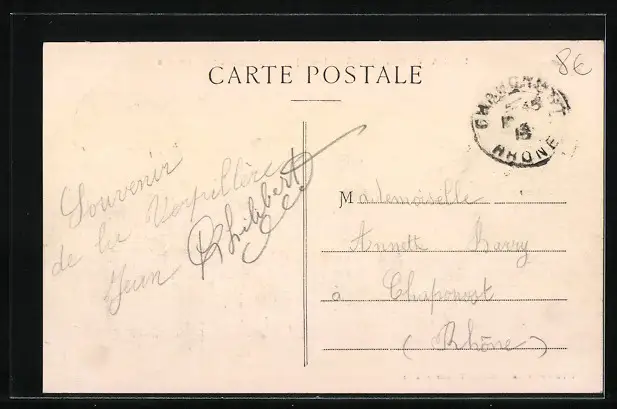 8€
CARTE POSTALE
CHAPONOST
15
RHONE
Souvenir
de la Verpillère
Jean Philibert
Mademoiselle
Annett Harry
à Chaponost
(Rhône)